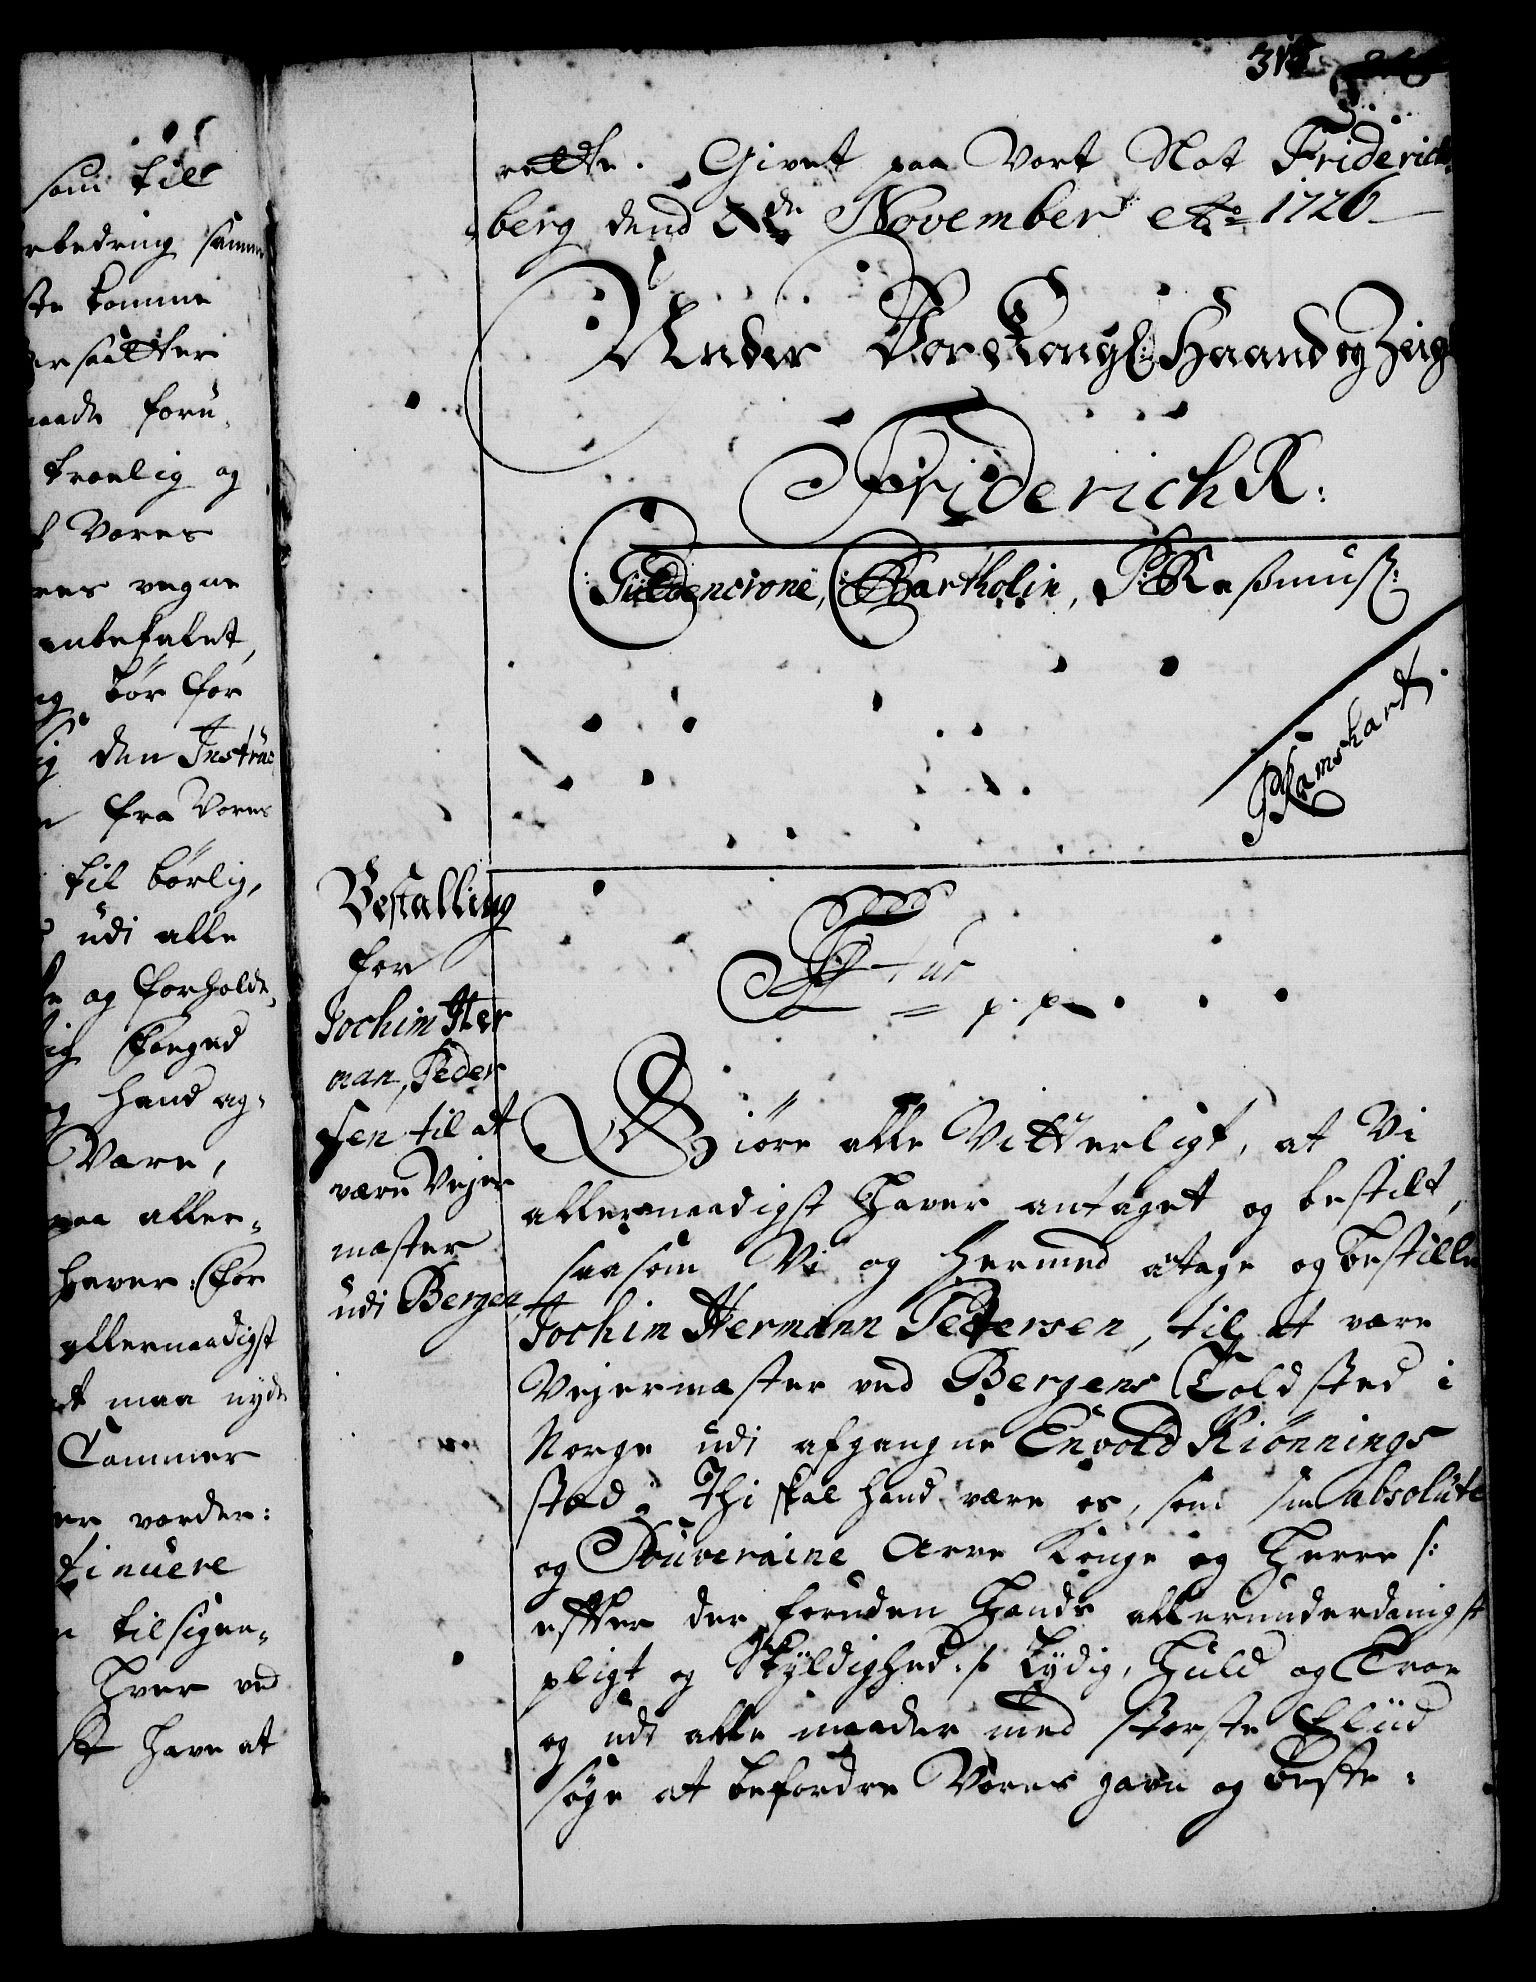 som till
rbedring samme
ste komme
ersætter
maade foru-
troelig og
f Vores
res vegne
anbefalet,
og bør for
ig den Instruc
fra Vores
til børlig,
udi alle
og forholde,
ig Eenged
hand og-
Være,
paa aller-
haver. For
allernaadigst
et maa nyde
Cammer
er vorder:
tinuere
tilsigne-
hver ved
have at
315
rette. Givet paa Vort Slot Friderichs
berg dend de November Ao 1726
Under Vor Kongl: Haand og Zeigl
Friderich R:
Güldencrone, CBartholin, P: Rasmuss:
PRamshart.
Bestalling
for
Jochim Her
man, Peder
sen til at
være Vejer
mæster
udi Bergen
Ttus
= p. p.
Giøre alle Vitterligt, at Vi
allernaadigst haver antaget og bestilt,
saasom Vi og hermed atage og bestille
Jochim Hermann Petersen, til at være
Vejermæster ved Bergens Toldsted i
Norge udi afgangne Envold Kiønnings
sted; Thi skal hand være os, som sin absolute
og Souveraine Arve Konge og Herre /:
effter der foruden hands allerunderdanigst
pligt og Skyldighed :/ Lydig, Huld og Troe
og udi alle maader med største Fliid
søge at befordre Vores gavn og beste.